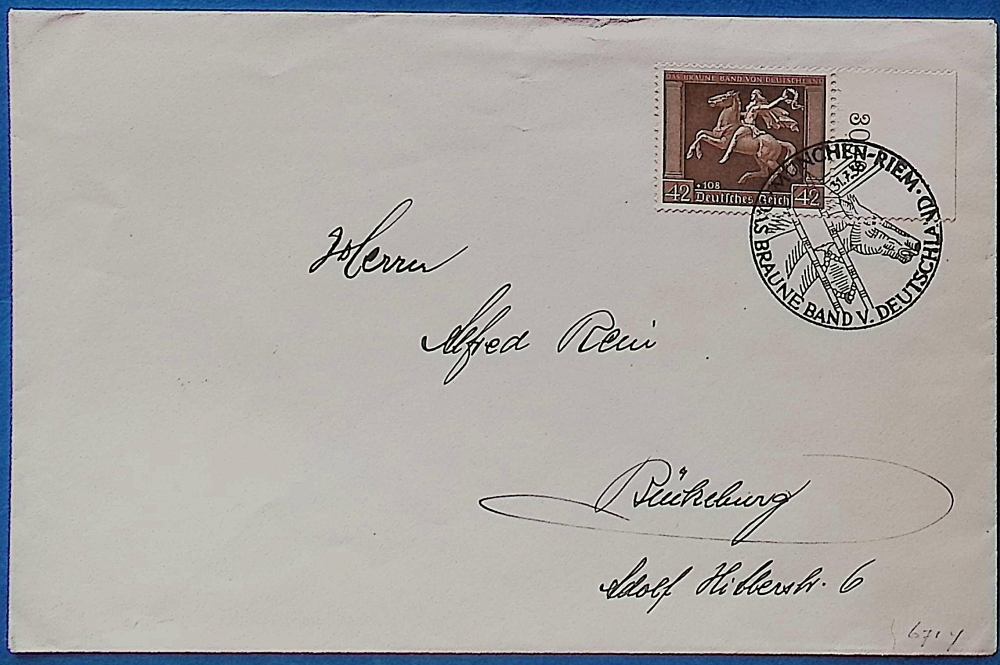 DAS BRAUNE BAND VON DEUTSCHLAND
42 + 108 Deutsches Reich 42
30
MÜNCHEN-RIEM · DAS BRAUNE BAND V. DEUTSCHLAND
31.7.38
Herrn
Alfred Rein
Bückeburg
Adolf Hitlerstr. 6